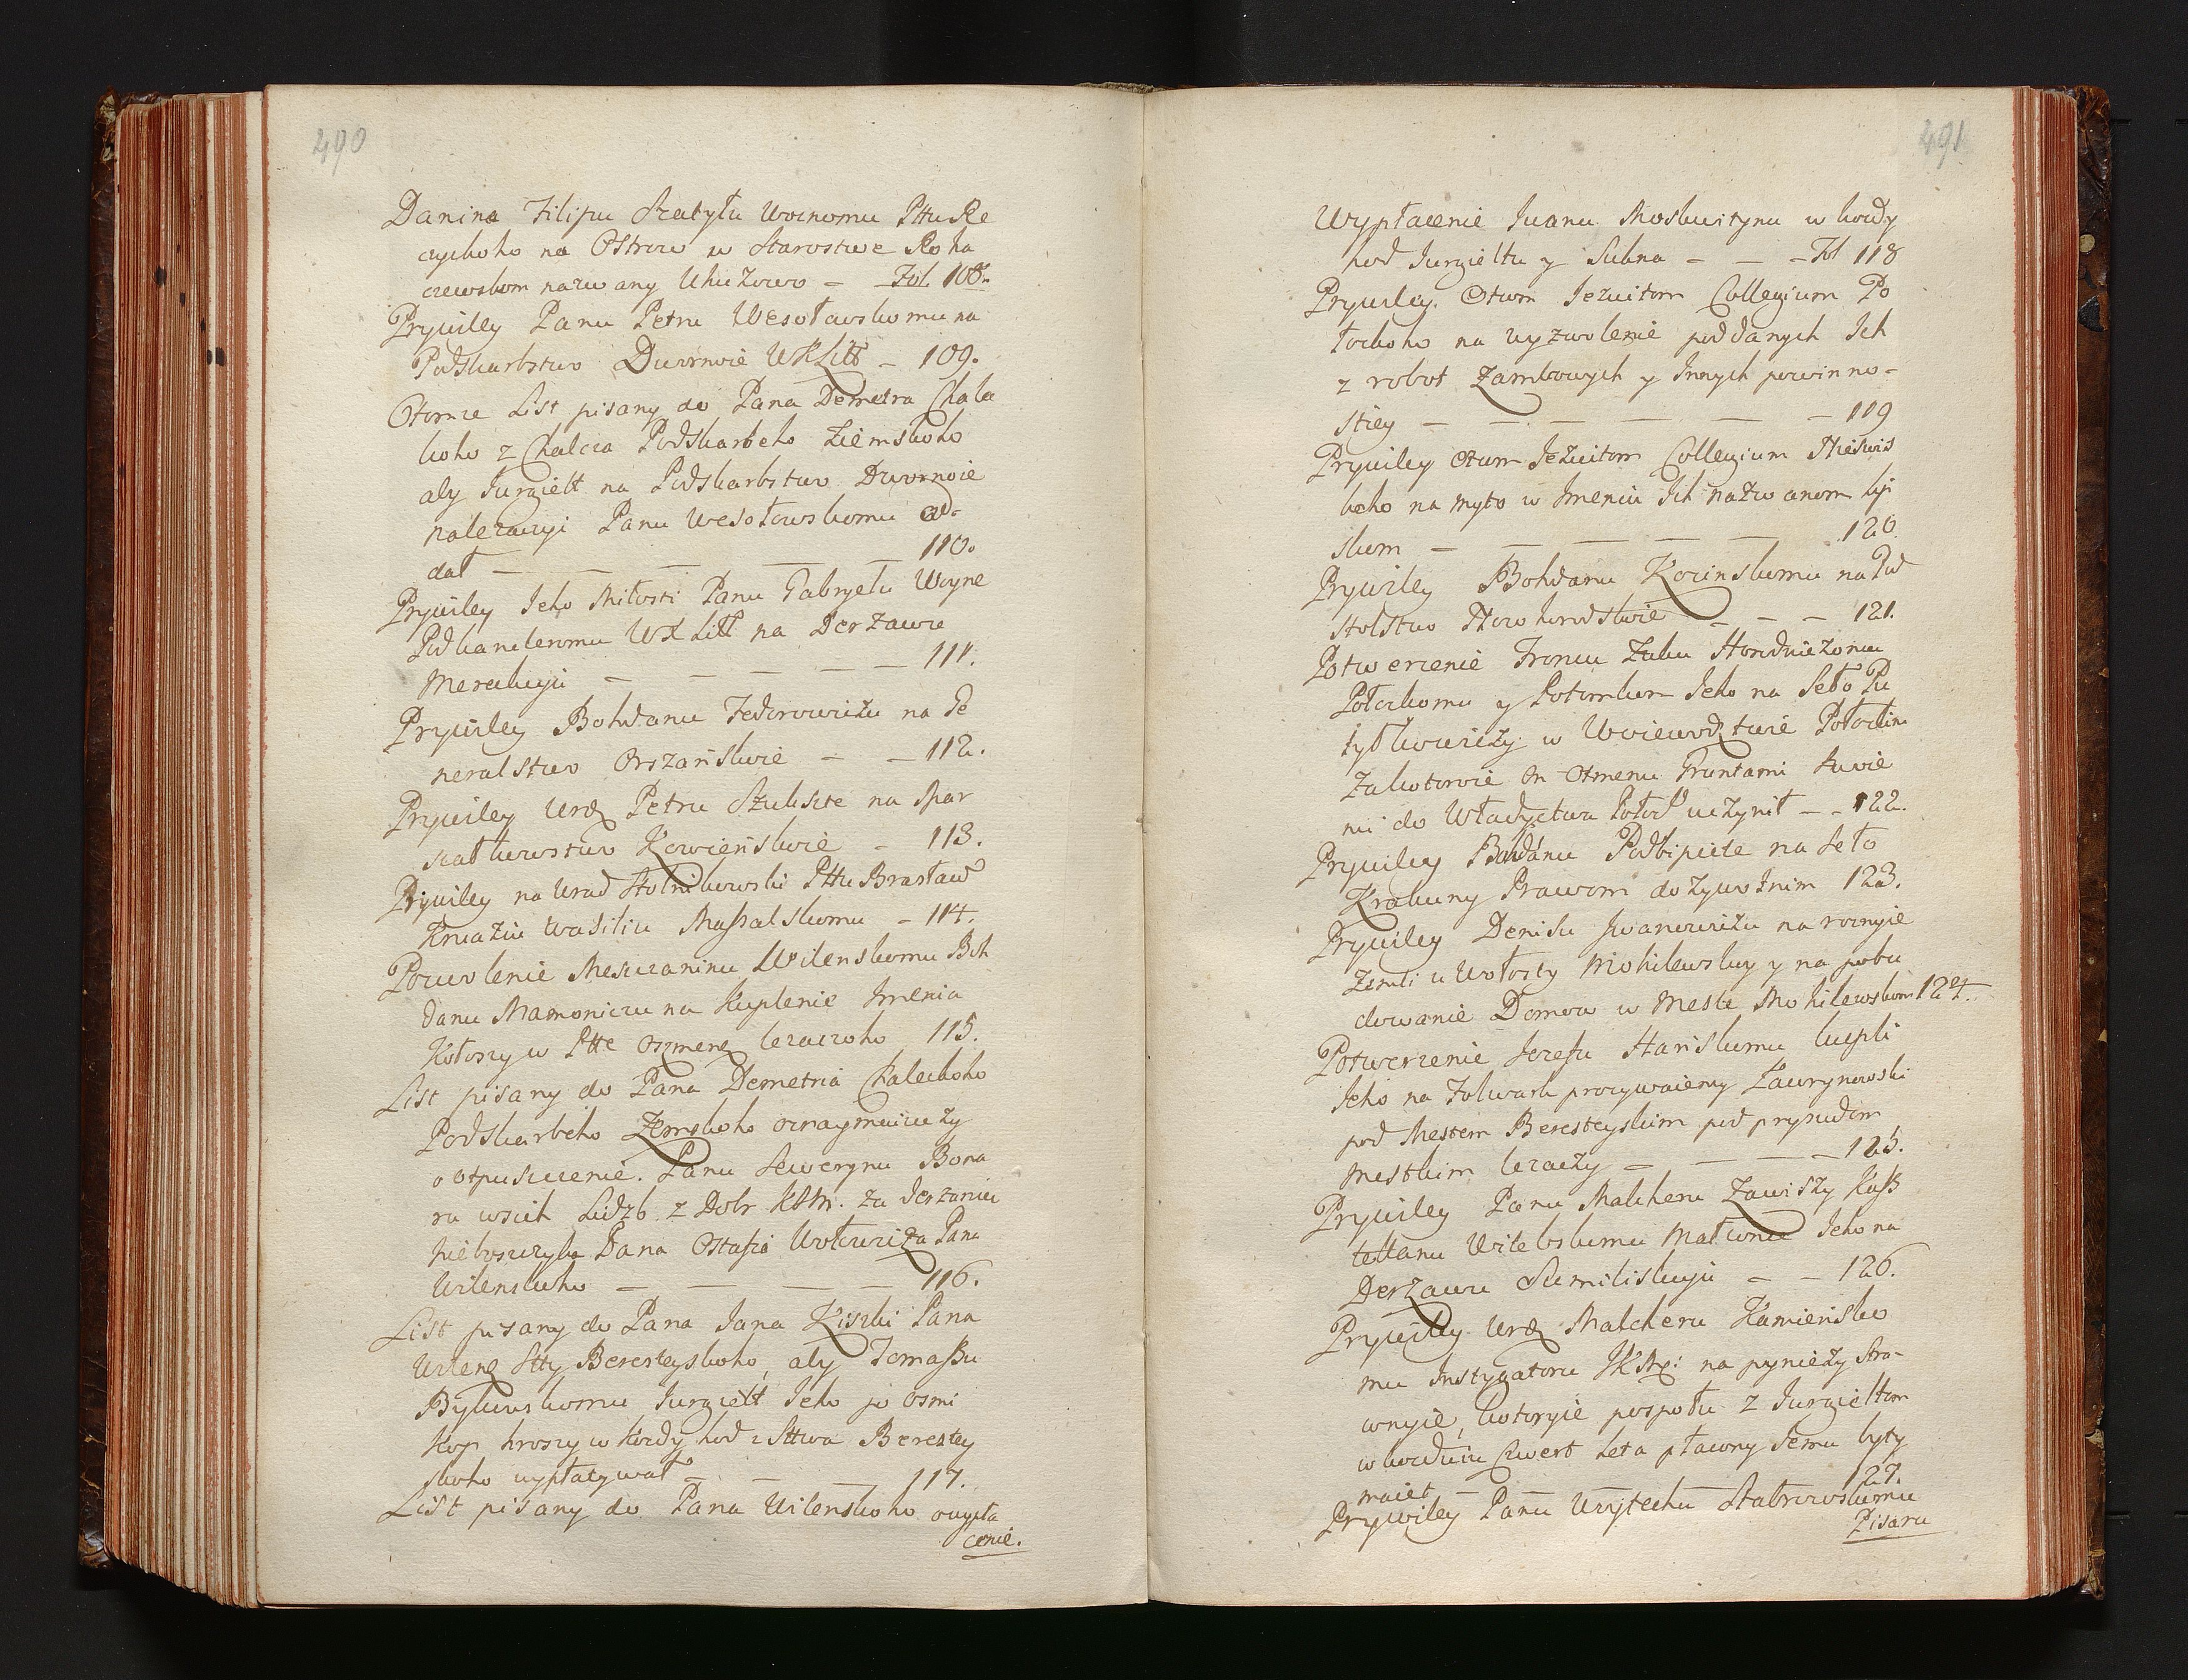 490
Danina Filipu Szatyłu Woznomu Pttu Re
czyckoho na Ostrow w Starostwe Roha
czewskom nazwany Uhużowo — Fol. 108.
Prywiley Panu Petru Wesołowskomu na
Podskarbstwo Dwornoie WKLitt — 109.
Otomże List pisany do Pana Demetra Chale
ckoho z Chalcza Podskarbeho Ziemskoho
aby Jurgielt na Podskarbstwo Dwornoie
należaczyi Panu Wesołowskomu od=
dał — — — — — 110.
Prywiley Jeho Miłosti Panu Gabryelu Woyne
Podkancleromu WXLitt na Derżawu
Mereckuju — — — — 111.
Prywiley Bohdanu Fedorowiczu na Je
neralstwo Orszańskoie — — 112.
Prywiley Urodz Petru Szukszte na Mar
szałkowstwo Kowieńskoie — 113.
Prywiley na Urad Stolnikowski Pttu Brasław
Kniaziu Wasiliu Massalskomu — 114.
Pozwolenie Mesczaninu Wilenskomu Boh
danu Mamoniczu na Kuplenie Imenia
Kołoszy w Ptte Oszmenẛ leżaczoho 115.
List pisany do Pana Demetria Chaleckoho
Podskarbeho Zemskoho oznaymuiuczy
o otpusczenie. Panu Sewerynu Bona
ru wsich Liczb z Dobr KJM. za derżaniu
nieboszczyka Pana Ostafia Wołowicza Pana
Wilenskoho — — — — 116.
List pisany do Pana Jana Kiszki Pana
Wilenẛ Stty Beresteyskoho, aby Tomaszu
Bykowskomu Jurgielt Jeho po osmi
kop hroszy w kożdy hod z Sttwa Berestey
skoho wypłaczywał — — — 117.
List pisany do Pana Wilenskoho o wypła
cenie.
491
Wypłacenie Iwanu Moskwitynu w kożdy
hod Jurgieltu y Sukna — — — Fol 118
Prywiley. Otcom Jezuitom Collegium Po
łockoho na wyzwolenie poddanych Ich
z robot Zamkowych y Innych powinno=
stiey — — — — — 119
Prywiley Otcom Jezuitom Collegium Nieswis
koho na myto w Imeniu Ich nazwanom
skom — — — — — 120
Prywiley Bohdanu Kocinskomu na Pod
stolstwo Nowohorodskoie — — — 121.
Potwerżenie Froncu Żuku Horodniczomu
Połockomu y Potomkom Jeho na Seło Pu
tyłkowiczy w Woiewodztwie Połockim
za kotoroie On Otmenu Gruntami swoie
mi do Władyctwa Połock uczynił — — 122.
Prywiley Bohdanu Podbipiete na Seło
Krakuny Prawom dożywotnim 123.
Prywiley Denisu Iwanowiczu na roznyie
Zemli u Wołosty Mohilewskoy y na pobu
dowanie Domow w Meste Mohilewskom 124.
Potwerżenie Jozefu Stanskomu kupli
Jeho na Folwark prozywaiemy Ławrynowski
pod Mestem Beresteyskim pod prysudom
Mestkim leżaczy — — — — 125.
Prywiley Panu Malcheru Zawiszy Kasz
tellanu Witebskomu Małżonce Jeho na
Derżawu Sumiliskuju — — 126.
Prywiley Urodz Malcheru Kamieńsko
mu Instygatoru JKMẛ: na pyniezy Stra=
wnyie, kotoryie pospołu z Jurgieltom
w kożduiu Czwert Leta płaczony Jemu byty
maiet — — — — — 127.
Prywiley Panu Woytechu Stabrowskomu
Pisaru